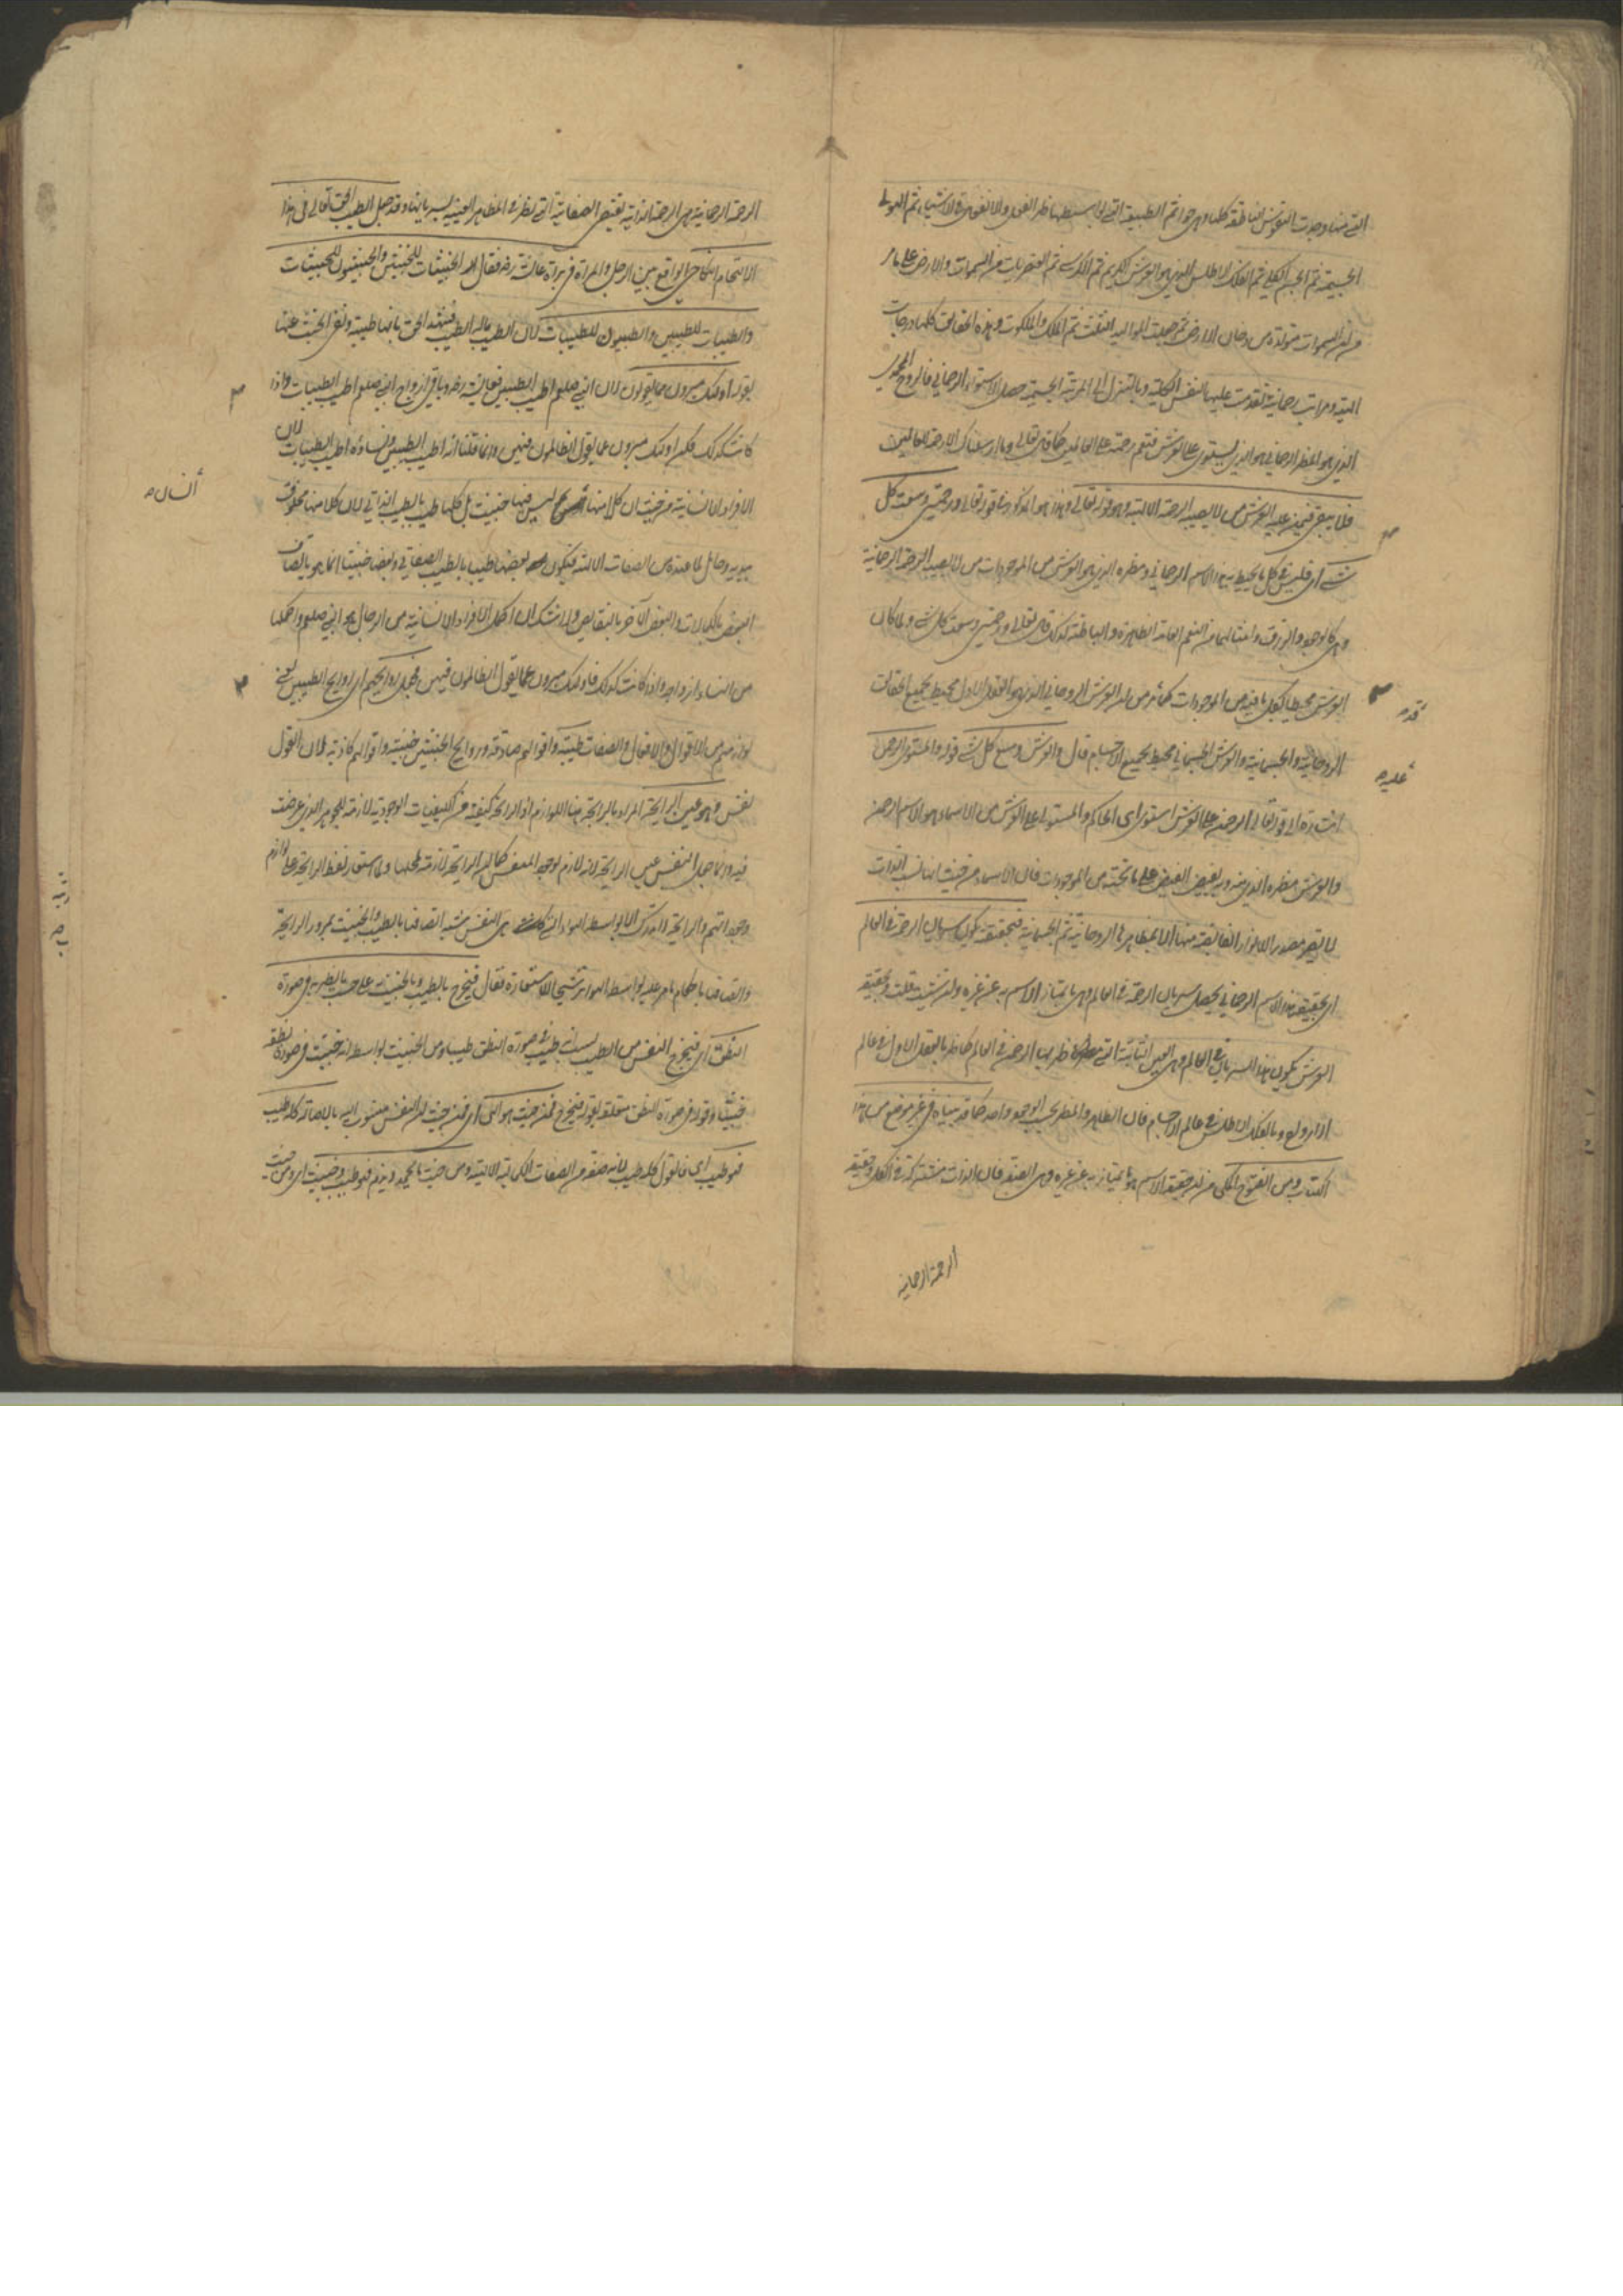 التي منها وجدت النفوس الناطقة كلها وهي حوا ثم الطبيعة التي بواسطتها ظهر الفعل والانفعال في الاشياء ثم الهيولى
الجسمية ثم الجسم الكلي ثم الفلك الاطلس الذي هو العرش الكريم ثم الكرسي ثم العنصريات من السموات والارض على ما مر
من ان السموات متولدة من دخان الارض ثم حصلت المواليد الثلث ثم الملك والملكوت وهذه الحقائق كلها درجات
الهية ومراتب رحمانية تقدمت عليها النفس الكلية وبالتنزل الى المرتبة الجسمية حصل الاستواء الرحماني فالروح المحمدي
الذي هو المظهر الرحماني هو الذي يستوي على العرش فتعم رحمته على العالمين كما قال تعالى وما ارسلناك الا رحمة للعالمين
فلا يبقى فيمن عليه العرش من لا يصيبه الرحمة الالهية وهو قوله تعالى وهذا هو المذكور في قوله تعالى ورحمتي وسعت كل
شئ اي فليس في كل ما يحيط به هذا الاسم الرحماني ومظهره الذي هو العرش من الموجودات من لا يصيبه الرحمة الرحمانية
وهي كالوجود والرزق وامثالهما من النعم العامة الظاهرة والباطنة كذلك قال تعالى ورحمتي وسعت كل شئ ولما كان
العرش محيطا بكل ما فيه من الموجودات كما مر من ان العرش الروحاني الذي هو العقل الاول محيط بجميع الحقائق
الروحانية والجسمانية والعرش الجسماني محيط بجميع الاجسام قال والعرش وسع كل شئ قوله والمستوي الرحمن
اشارة الى قوله تعالى الرحمن على العرش استوى اي الحاكم والمستولي على العرش من الاسماء هو الاسم الرحمن
والعرش مظهره الذي منه وبه يفيض الفيض على ما تحته من الموجودات فان الاسماء من حيث انها نسب الذات
لا يصير مصدر الانوار الفائضة منها الا بمظاهرها الروحانية ثم الجسمانية فبحقيقته يكون سريان الرحمة في العالم
اي بحقيقة هذا الاسم الرحماني يحصل سريان الرحمة في العالم وهي ما يمتاز الاسم به عن غيره وان شئت قلت وبحقيقة
العرش يكون هذا السريان في العالم وهي العين الثابتة التي ظهر بها الرحمن في العالم كما ظهر بالعقل الاول في عالم
الارواح وبالفلك الاطلس في عالم الاجسام فان الظاهر والمظهر بحسب الوجود واحد كما قد بيناه في غير موضع من هذا
الكتاب ومن الفتوح المكي من ان حقيقة الاسم هو ما يمتاز به عن غيره وهي الصفة فان الذات مشتركة في الكل وحقيقة
الرحمة الرحمانية
قوله
عليه
الرحمة الرحمانية هي الرحمة الذاتية تقتضي الصفاتية التي تظهر في المظاهر العينية لسريانها وقد جعل الطيب الحق تعالى في هذا
الالتحام النكاحي الواقع بين الرجل والمراة في براة عائشة رض فقال الله الخبيثات للخبيثين والخبيثون للخبيثات
والطيبات للطيبين والطيبون للطيبات لان الطيب بالطيب فشهد الحق بانها طيبة ونفى الخبث عنها
بقوله اولئك مبرؤن مما يقولون لان النبي صلعم اطيب الطيبين فعائشة رض وباقي ازواج النبي صلعم اطيب الطيبات واذا
كانت كذلك فكن اولئك مبرؤن عما يقول الظالمون فيهن وانما قلنا انه اطيب الطيبين ونساؤه اطيب الطيبات لان
الافراد الانسانية من حيث ان كلا منها ليس فيها خبيث بل كلها طيب بالطيب الذاتي لان كلا منها مخلوق
بيديه وحامل لما عنده من الصفات الالهية فيكون بعضها طيب بالطيب الصفاتي وبعضها خبيثا انما هو باتصاف
البعض بالكمالات والبعض الآخر بالنقايص ولا شك ان اكمل الافراد الانسانية من الرجال هو النبي صلعم واكملها
من النساء ازواجه واذا كانت كذلك فاولئك مبرؤن عما يقول الظالمون فيهن فجعل روايحهم اي روايح الطيبين يعني
لوازمهم من الاقوال والافعال والصفات طيبة واقوالهم صادقة وروايح الخبيثين خبيثة واقوالهم كاذبة لان القول
نفس وهو عين الرايحة المراد بالرايحة هنا اللوازم اذ الرايحة كيفية من الكيفيات الوجودية لازمة للجوهر الذي عرضت
فيه وانما جعل النفس عين الرايحة لانه لازم لوجود المتنفس كما ان الرايحة لازمة لمحلها ولما استعار لفظ الرايحة على لوازم
وجوداتهم والرايحة لا تدرك الا بواسطة الهواء الذي هي النفس شبه اتصافها بالطيب والخبيث بمرور الرايحة
واتصافها باحكام ما مر عليه بواسطة الهواء ترشيحا للاستعارة فقال فيخرج بالطيب وبالخبيث على حسب ما يظهر به في صورة
النطق اي فيخرج النفس من الطيب بسبب طيبه في صورة النطق طيبا ومن الخبيث بواسطة انه خبيث في صورة نطقه
خبيثا وقوله في صورة النطق متعلقة بقوله فيخرج فمن حيث هو الهي اي فمن حيث ان النفس منسوب اليه بالاصالة كله طيب
فهو طيب اي فالقول كله طيب لانه صفة من الصفات الكمالية الالهية ومن حيث ما يحمد ويذم فهو طيب وخبيث اي ومن حيث
انسان